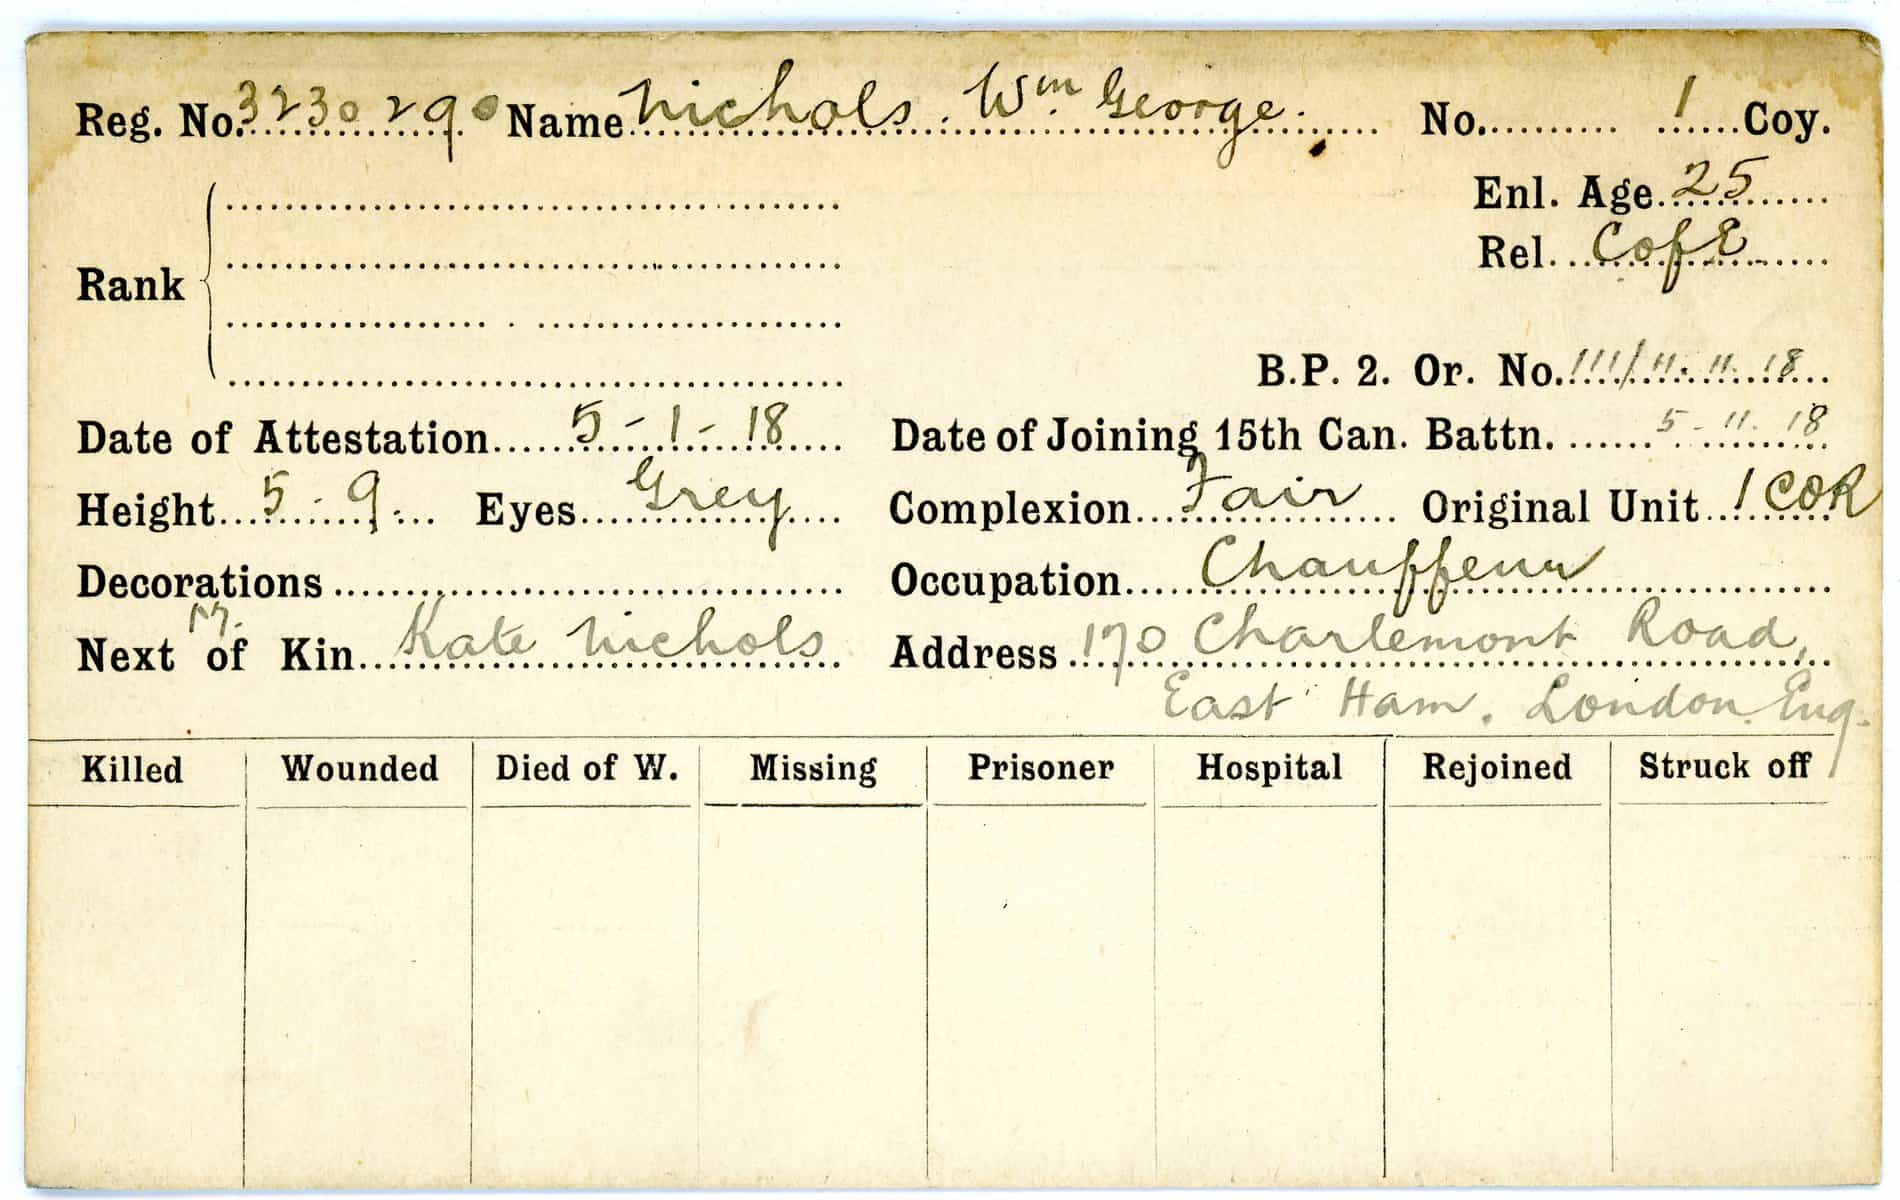 Reg. No. 3230290 Name Nichols. Wm. George. No. 1 Coy.
Enl. Age 25
Rel. C of E
Rank
B.P. 2. Or. No. 111/11-11-18
Date of Attestation 5-1-18 Date of Joining 15th Can. Battn. 5-11-18
Height 5.9. Eyes Grey Complexion Fair Original Unit 1 COR
Decorations Occupation Chauffeur
M.
Next of Kin Kate Nichols Address 170 Charlemont Road,
East Ham. London. Eng.
Killed Wounded Died of W. Missing Prisoner Hospital Rejoined Struck off